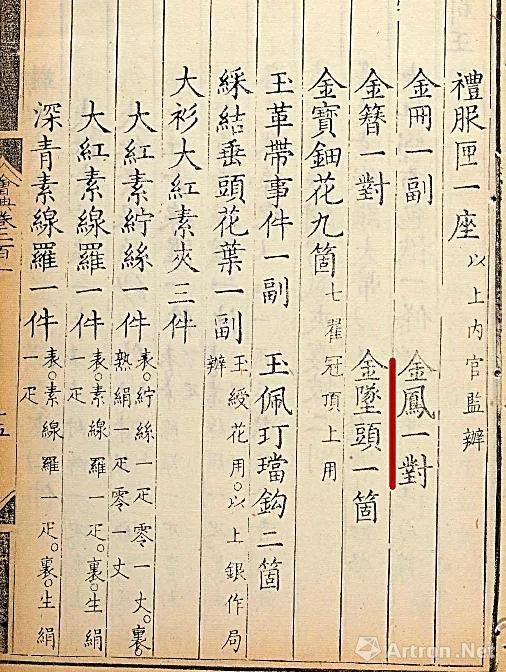 禮服匣一座 以上內官監辦
金冊一副 金鳳一對
金簪一對 金墜頭一箇
金寶鈿花九箇 七翟冠頂上用
玉革帶事件一副 玉佩玎璫鈎二箇
綵結垂頭花葉一副 玉綬花用。以上銀作局辦
大衫大紅素夾三件
大紅素紵絲一件 表。紵絲一疋零一丈。裏。熟絹一疋零一丈
大紅素線羅一件 表。素線羅一疋。裏。生絹一疋
深青素線羅一件 表。素線羅一疋。裏。生絹一疋
會典卷二百一
Artron.Net